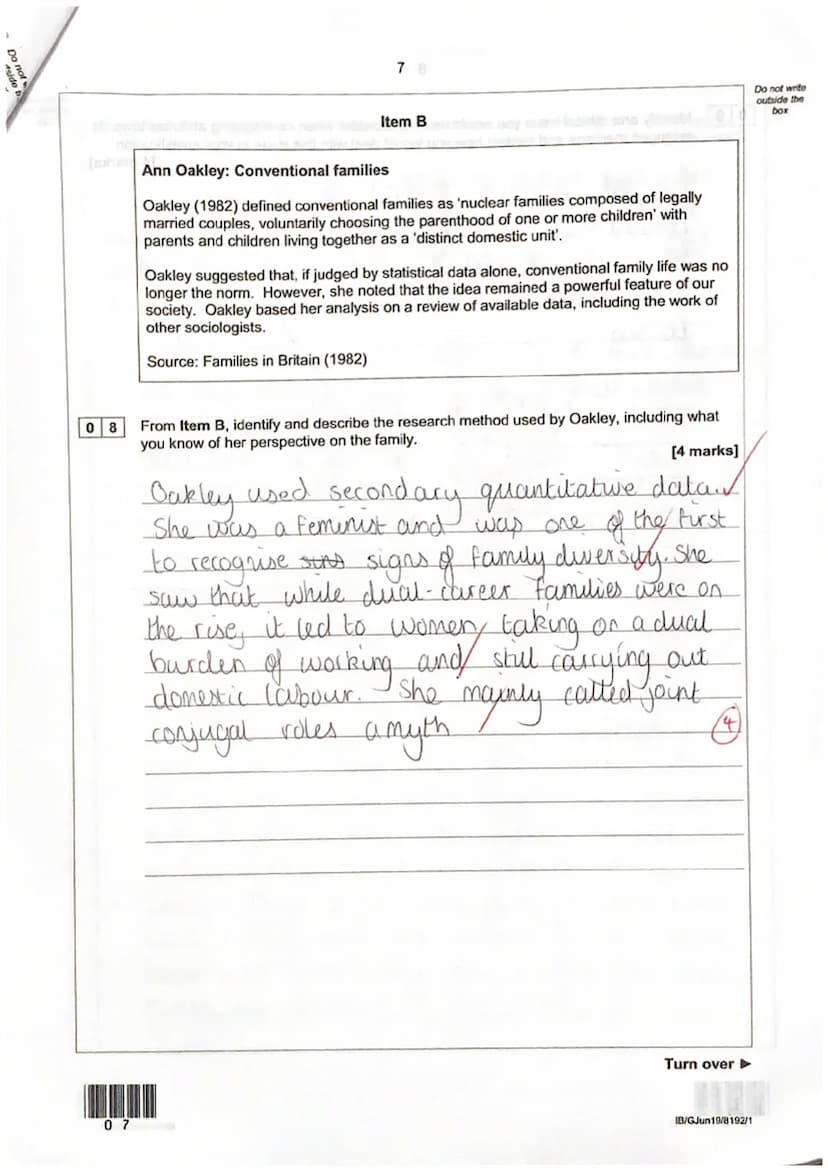 Do not
7
Do not write
outside the
box
Item B
Ann Oakley: Conventional families
Oakley (1982) defined conventional families as ‘nuclear families composed of legally
married couples, voluntarily choosing the parenthood of one or more children’ with
parents and children living together as a ‘distinct domestic unit’.
Oakley suggested that, if judged by statistical data alone, conventional family life was no
longer the norm. However, she noted that the idea remained a powerful feature of our
society. Oakley based her analysis on a review of available data, including the work of
other sociologists.
Source: Families in Britain (1982)
0 8 From Item B, identify and describe the research method used by Oakley, including what
you know of her perspective on the family.
[4 marks]
Oakley used secondary quantitative data.
She was a feminist and was one of the first
to recognise signs of family diversity. She
saw that while dual-career families were on
the rise, it led to women taking on a dual
burden of working and still carrying out
domestic labour. She mainly called joint
conjugal roles a myth
4
Turn over ►
0 7
IB/G/Jun19/8192/1